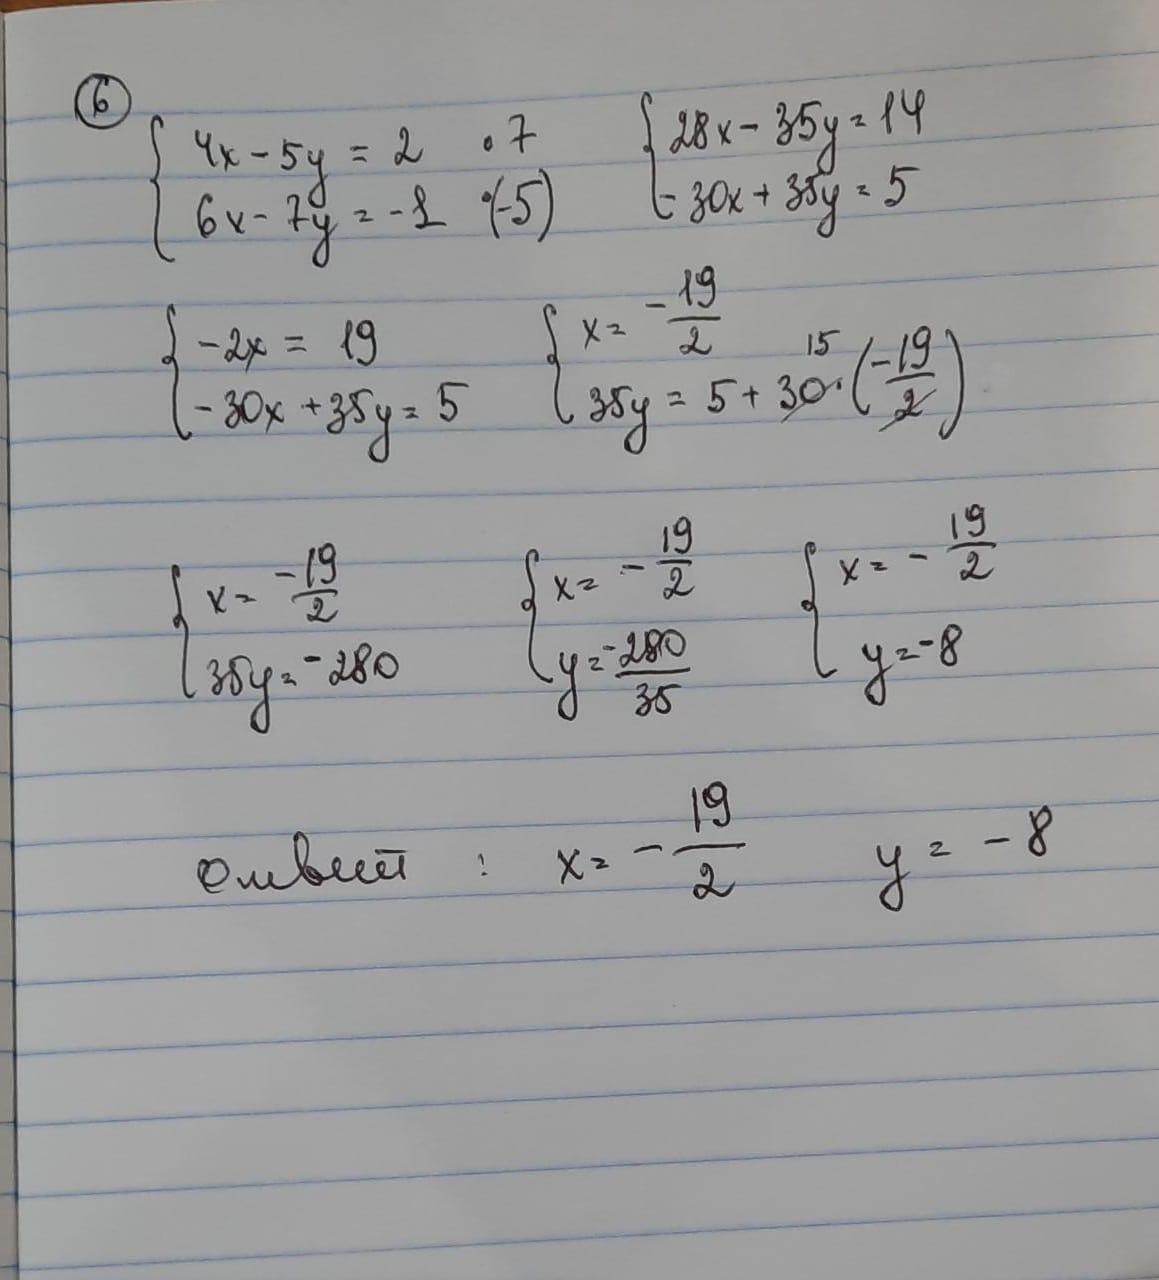 6
4x - 5y = 2 · 7
6x - 7y = -1 ·(-5)
28x - 35y = 14
-30x + 35y = 5
-2x = 19
-30x + 35y = 5
x = -19/2
35y = 5 + 30 · (-19/2) 15
x = -19/2
35y = -280
x = -19/2
y = -280/35
x = -19/2
y = -8
Ответ : x = -19/2 y = -8